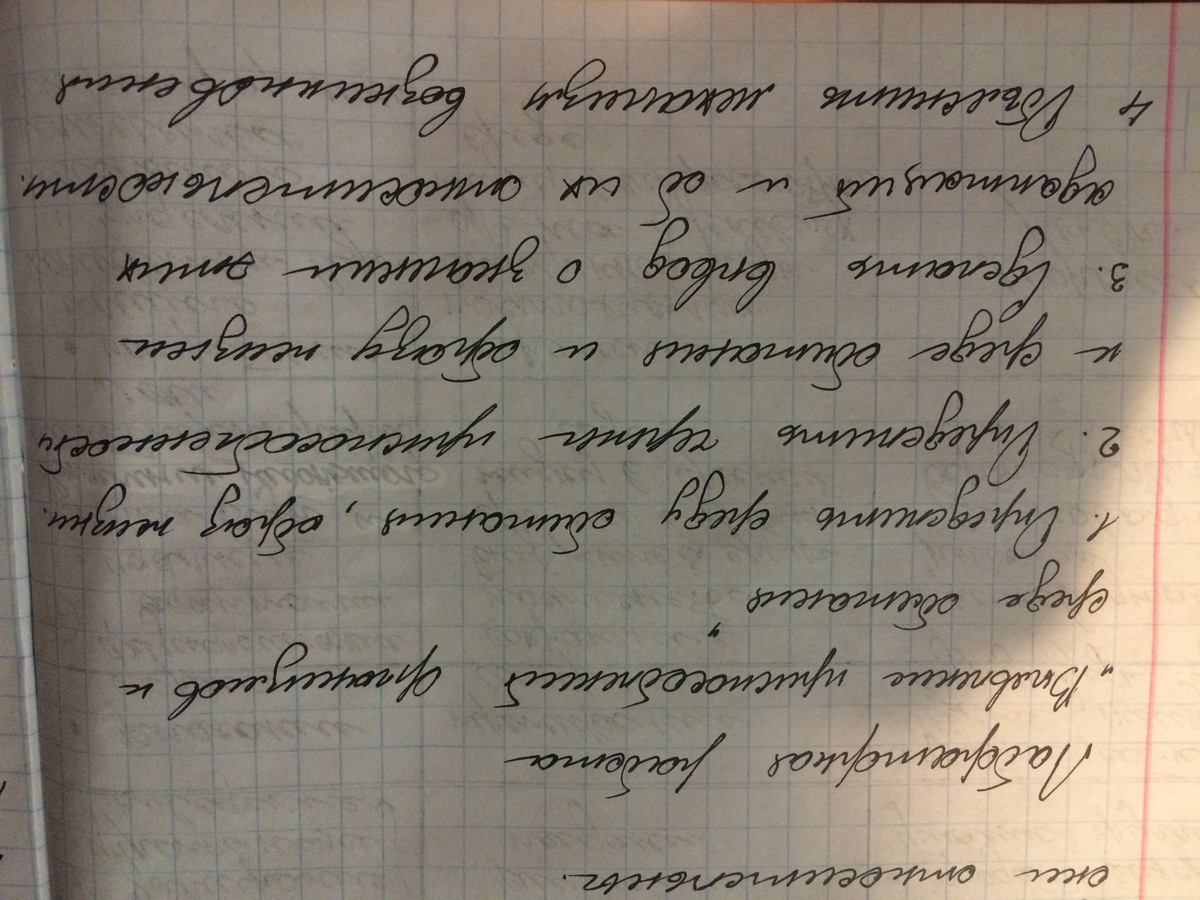 они относительны.
Лабораторная работа
„Выявление приспособлений организмов к
среде обитания"
1. Определить среду обитания, образ жизни.
2. Определить черты приспособленности
к среде обитания и образу жизни
3. Сделать вывод о значении этих
адаптаций и об их относительности.
4 Объяснить механизм возникновения